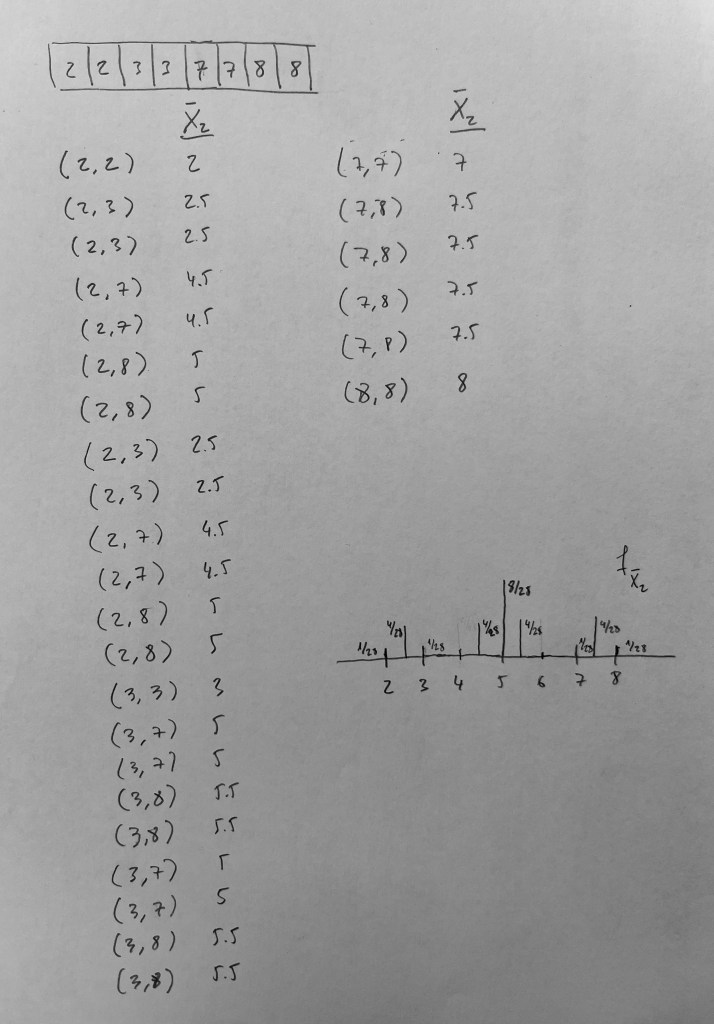 2 2 3 3 7 7 8 8
X̄₂
(2,2) 2
(2,3) 2.5
(2,3) 2.5
(2,7) 4.5
(2,7) 4.5
(2,8) 5
(2,8) 5
(2,3) 2.5
(2,3) 2.5
(2,7) 4.5
(2,7) 4.5
(2,8) 5
(2,8) 5
(3,3) 3
(3,7) 5
(3,7) 5
(3,8) 5.5
(3,8) 5.5
(3,7) 5
(3,7) 5
(3,8) 5.5
(3,8) 5.5
X̄₂
(7,7) 7
(7,8) 7.5
(7,8) 7.5
(7,8) 7.5
(7,8) 7.5
(8,8) 8
f X̄₂
8/28
1/28 4/28 1/28 4/28 4/28 1/28 4/28 1/28
2 3 4 5 6 7 8